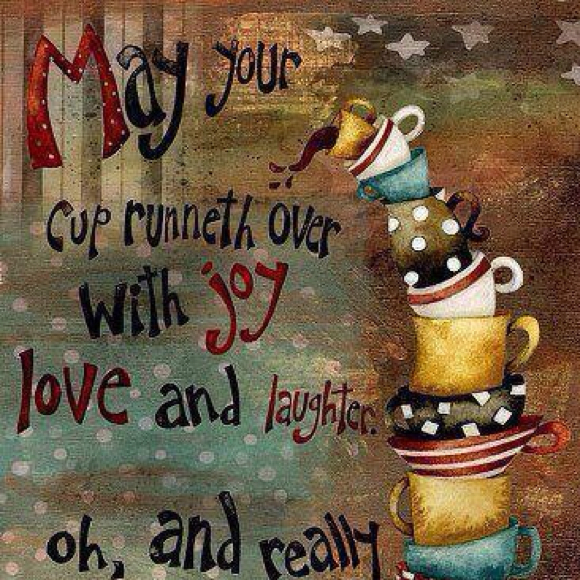 May your
cup runneth over
with joy
love and laughter.
oh, and really